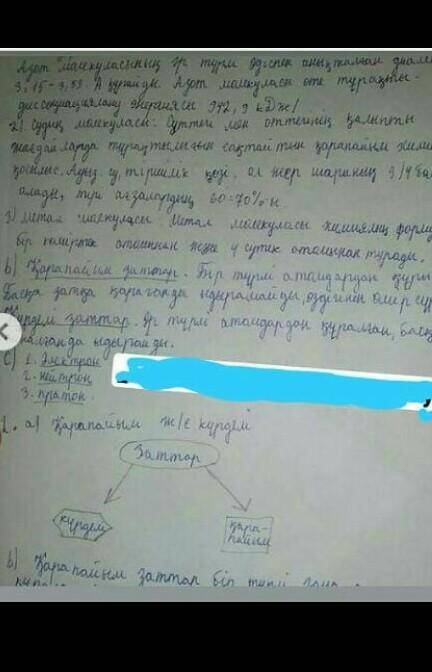 Азот Молекуласының әр түрлі әдіспен анықталған диаме
3,15-3,53. А құрайды. Азот молекуласы өте тұрақты.
диссоциациялану энергиясы 942,9 кДж/
2) Судың молекуласы: Сутегі мен оттегінің қалыпты
жағдайларда тұрақтылығын сақтайтын қарапайым химия
қосылыс. Ауыз су, тіршілік көзі, ол жер шарының 3/4 ба
алады, тірі ағзалардың 60-70% ы.
3) Метан молекуласы: Метан молекуласы химиялық форму
бір көміртек атомынан және 4 сутек атомынан тұрады.
b) Қарапайым заттар. Бір түрлі атомдардан құры
Басқа затқа қарағанда ыдырамайды, өздігінен өмір сүр
Күрделі заттар. Әр түрлі атомдардан құралған, басқа
ғанда ыдырайды.
c) 1. Электрон
2. нейтрон
3. протон.
2. a) Қарапайым ж/е күрделі
Заттар
күрделі
қара-
пайым
b) Қарапайым заттар бір түрлі